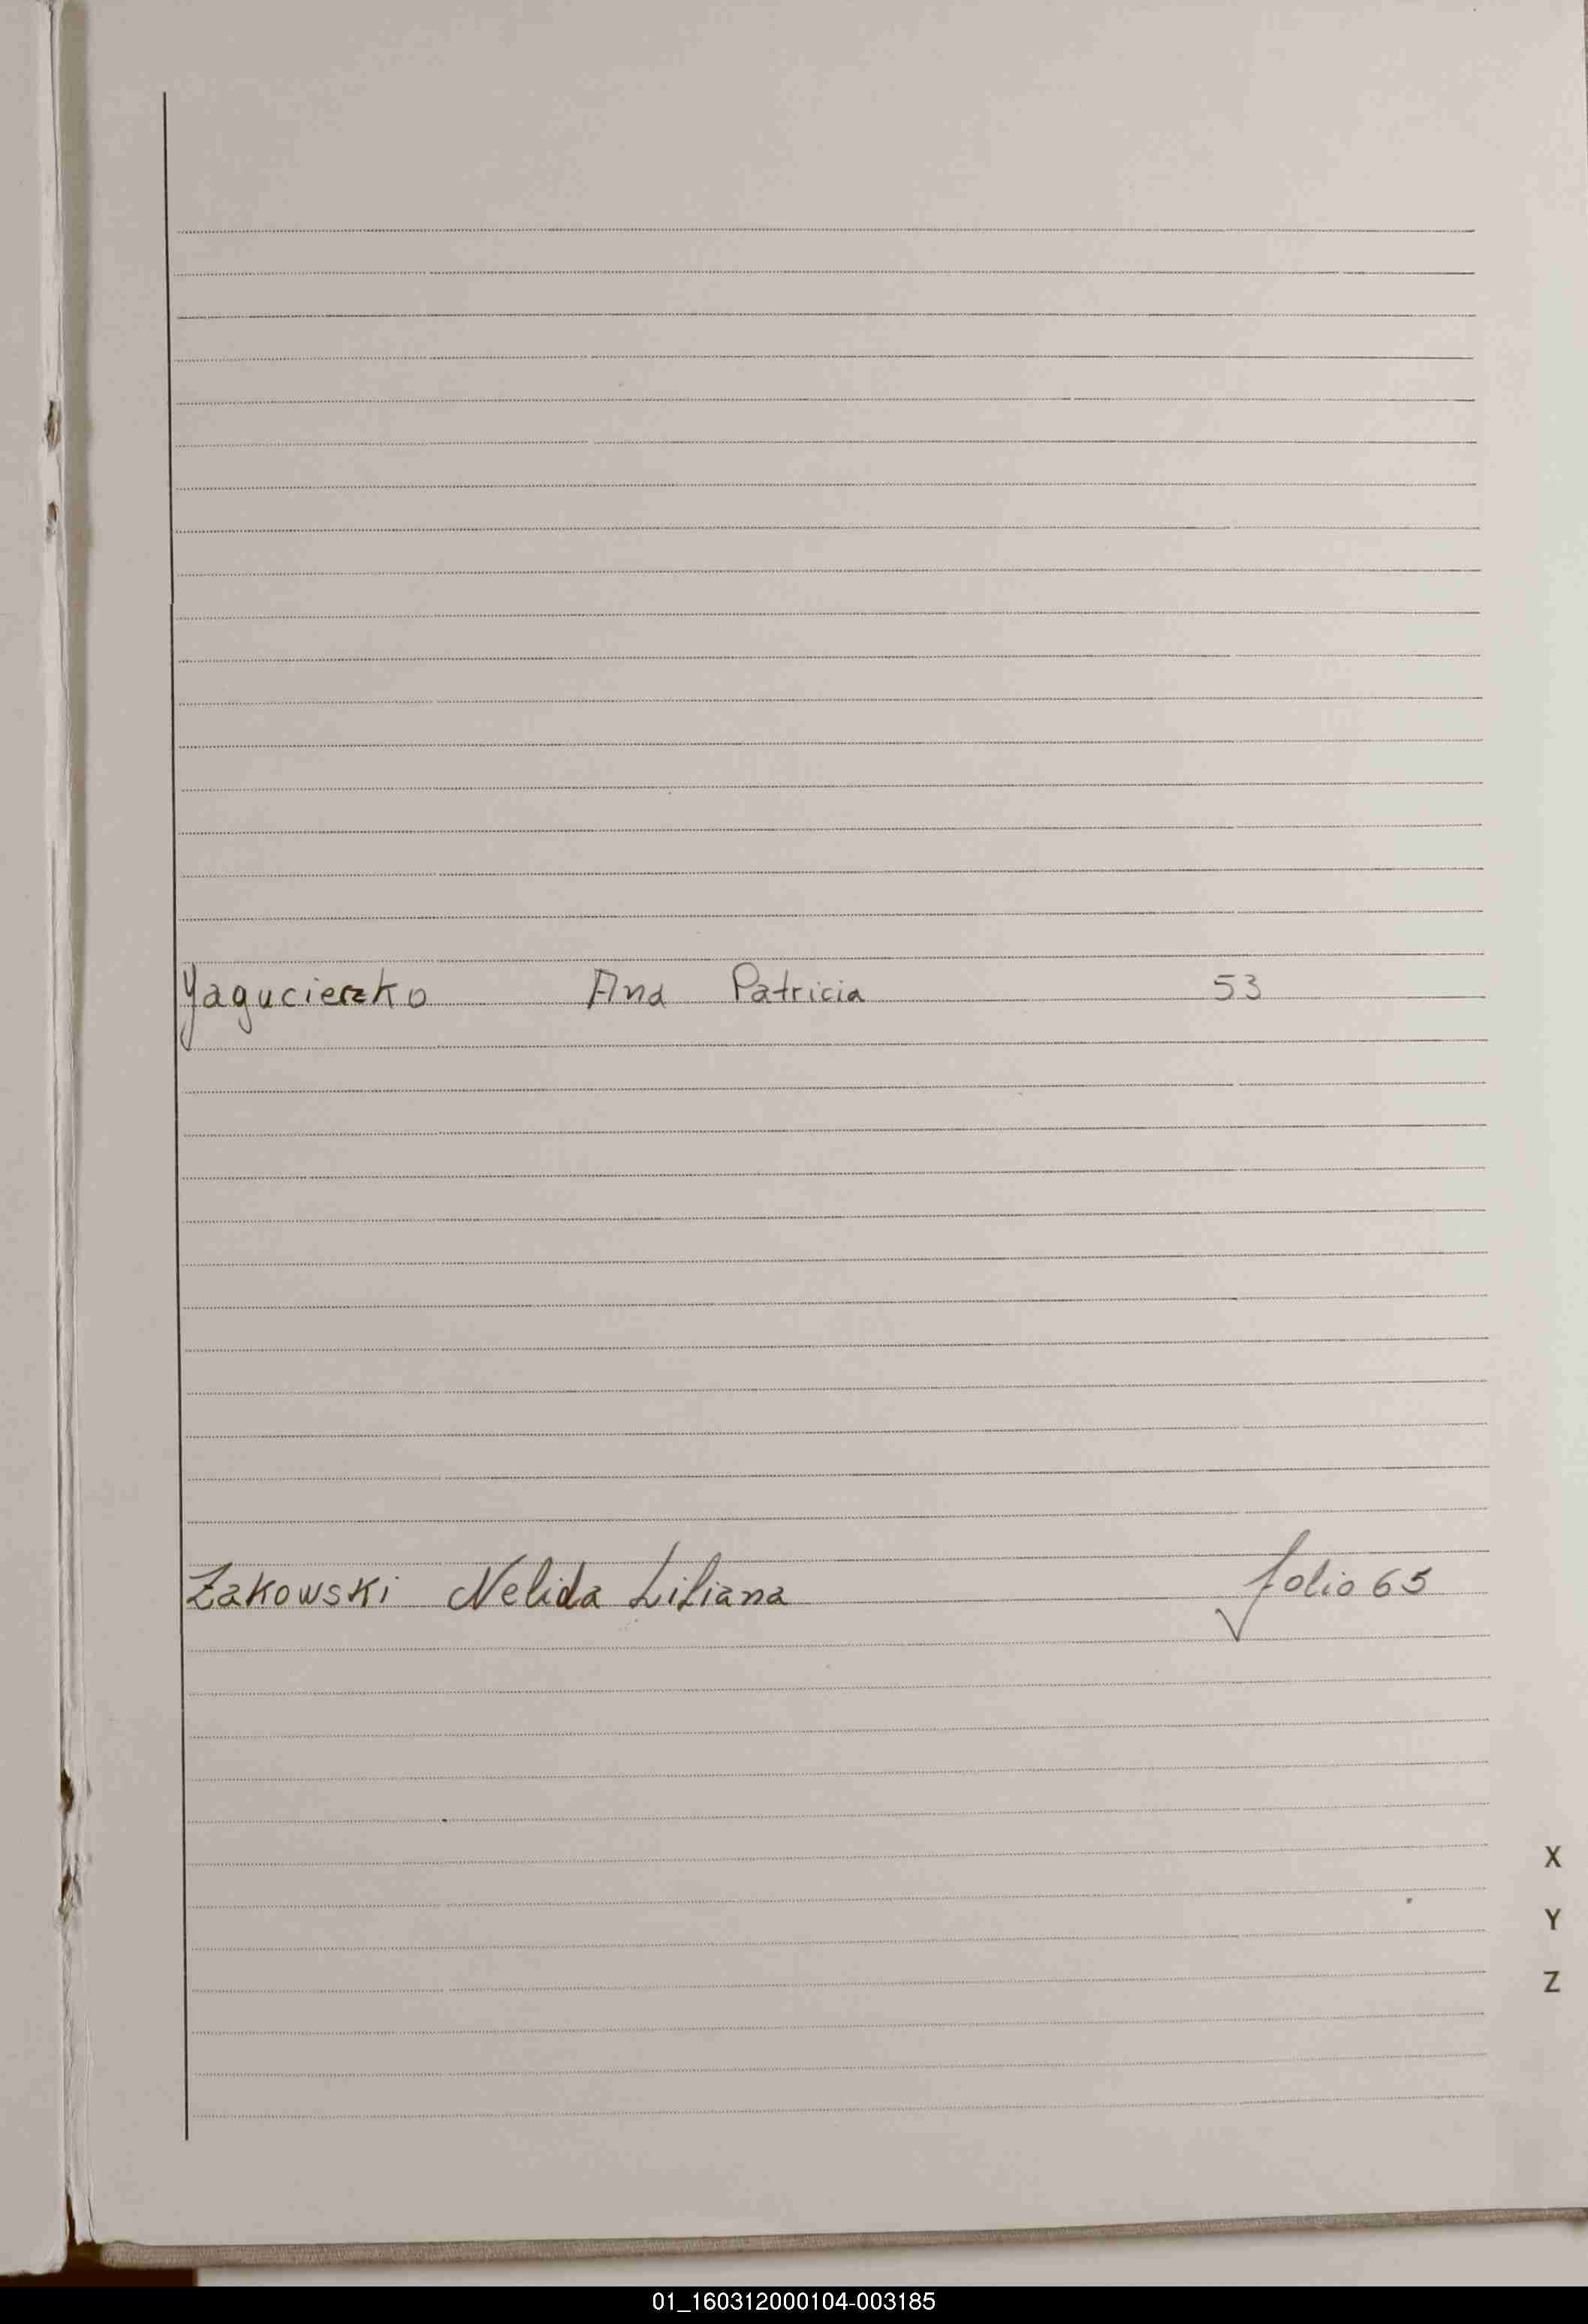 Yagucierzko Ana Patricia 53
Zakowski Nelida Liliana folio 65
X
Y
Z
01_160312000104-003185